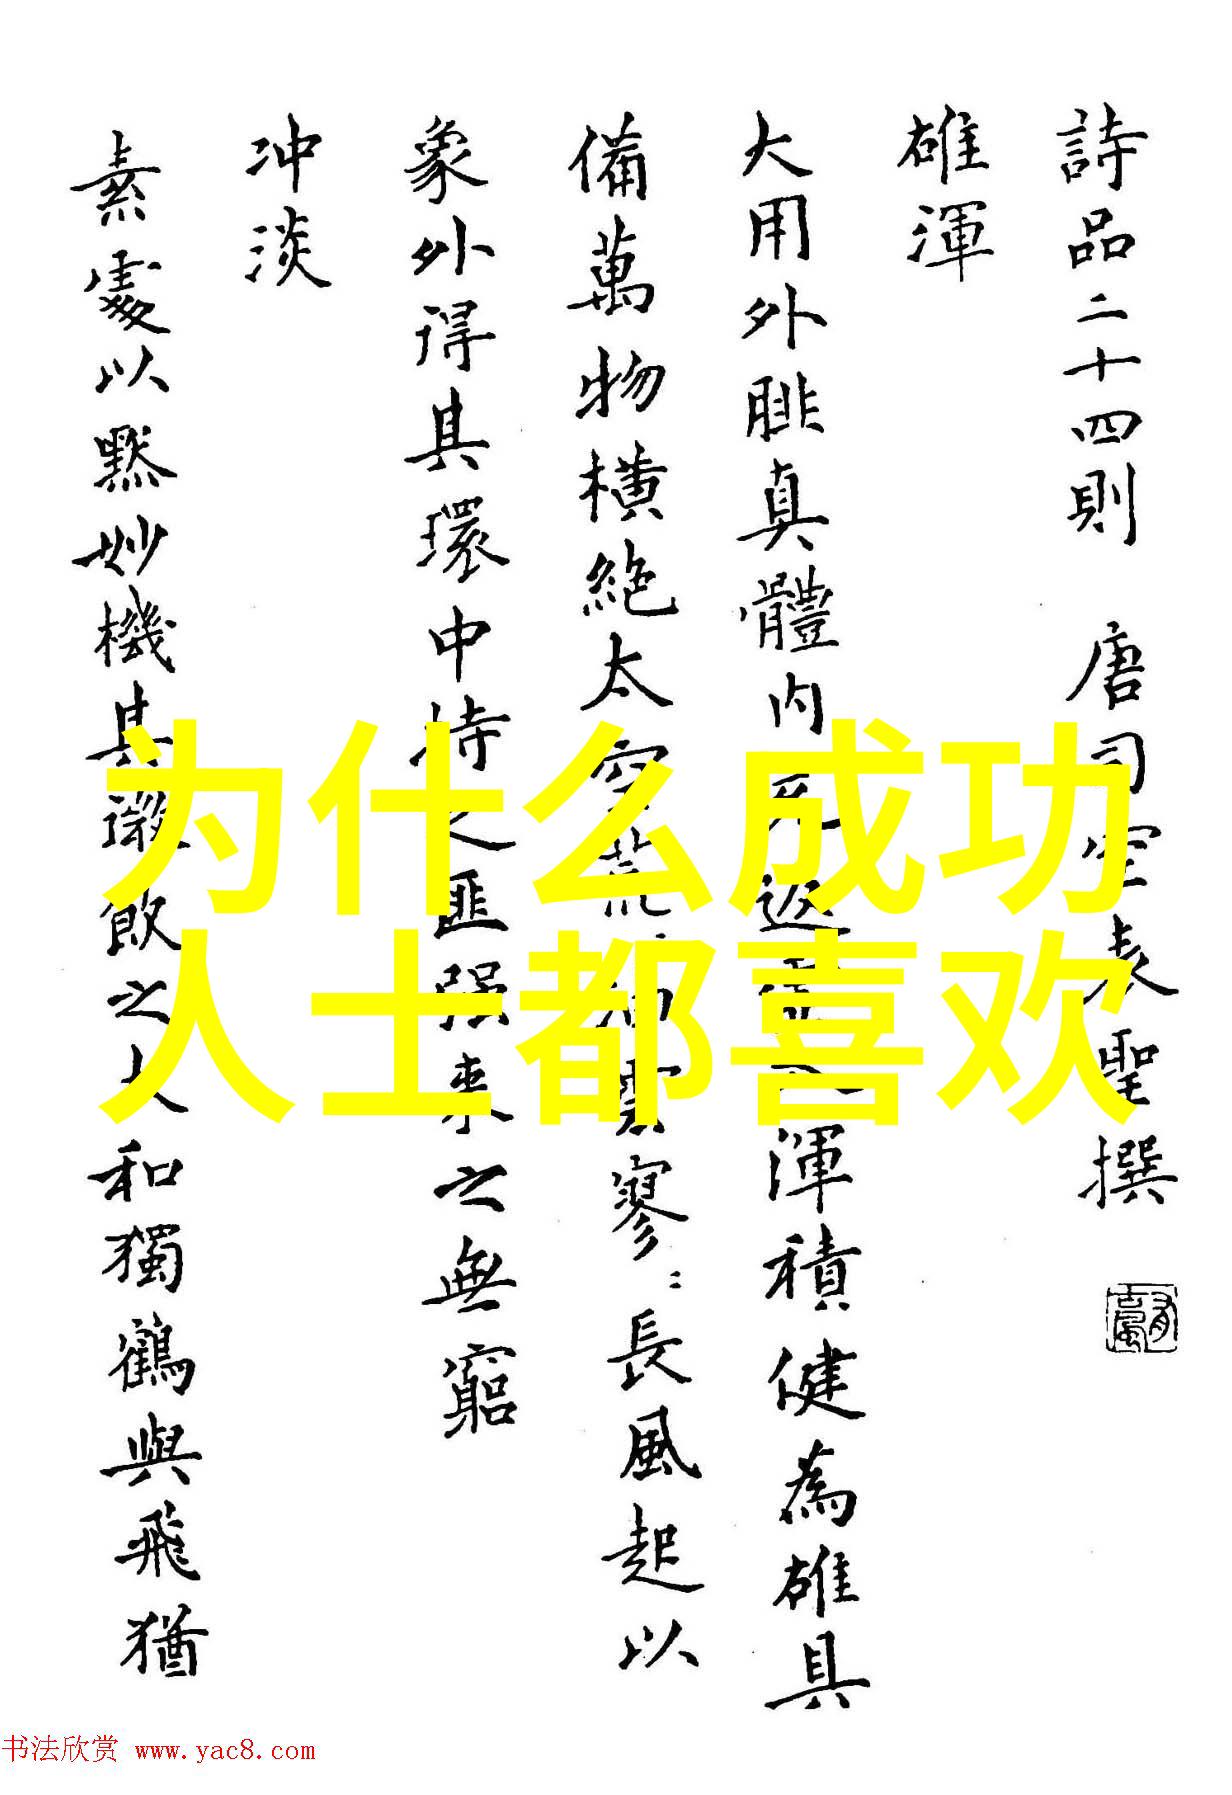 詩品二十四則 唐司空表聖撰
雄渾
大用外腓真體内充返虛入渾積健為雄具
備萬物橫絶太空荒荒油雲寥〻長風起以
象外得其環中持之匪强来之無窮
冲淡
素處以黙妙機其微飲之太和獨鶴與飛猶
为什么成功
人士都喜欢
书法欣赏 www.yac8.com